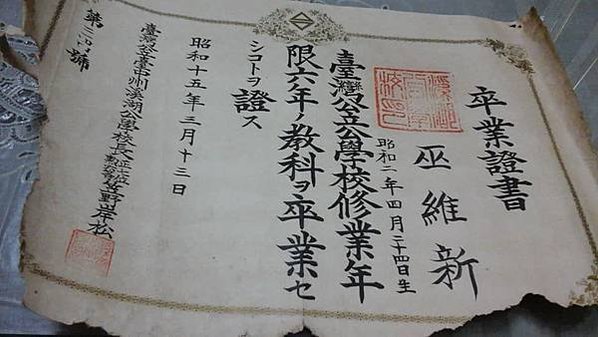 卒業證書
巫維新
昭和二年四月二十四日生
臺灣公立公學校修業年
限六ヶ年ノ教科ヲ卒業セ
シコトヲ證ス
昭和十五年三月十三日
臺灣公立臺中州溪湖公學校長 笠野岸松
第 號